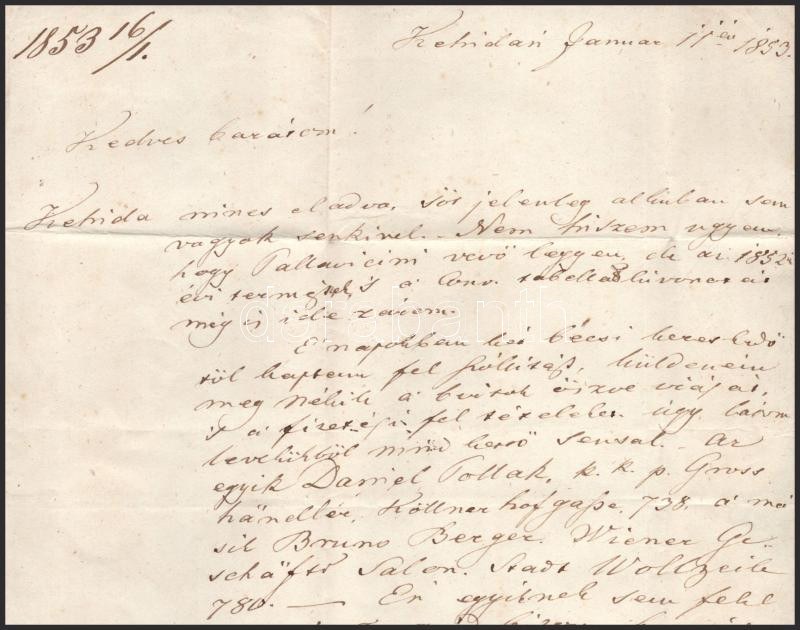 1853 16/1.
Kehidán Januar 11én 1853.
Kedves barátom!
Kehida nincs eladva, sőt jelenleg alkuban sem
vagyok senkivel. Nem hiszem ugyan,
hogy Pallavicini vevő legyen, de az 1852
évi termést és a Conv. tabella kivonatát
még is ide zárom.
E napokban két bécsi kereskedő
től kaptam fel szólitást, küldeném
meg nékik a birtok
is a fizetési fel tételeket. úgy látom
levelükből mind kettő sensal. Az
egyik Daniel Pollak, k. k. p. Gross
händler, Köllnerhofgaße, 738, a má
sik Bruno Berger. Wiener Ge-
schäfts Salon. Stadt Wollzeile
780. — Én egyiknek sem felel
darabanth